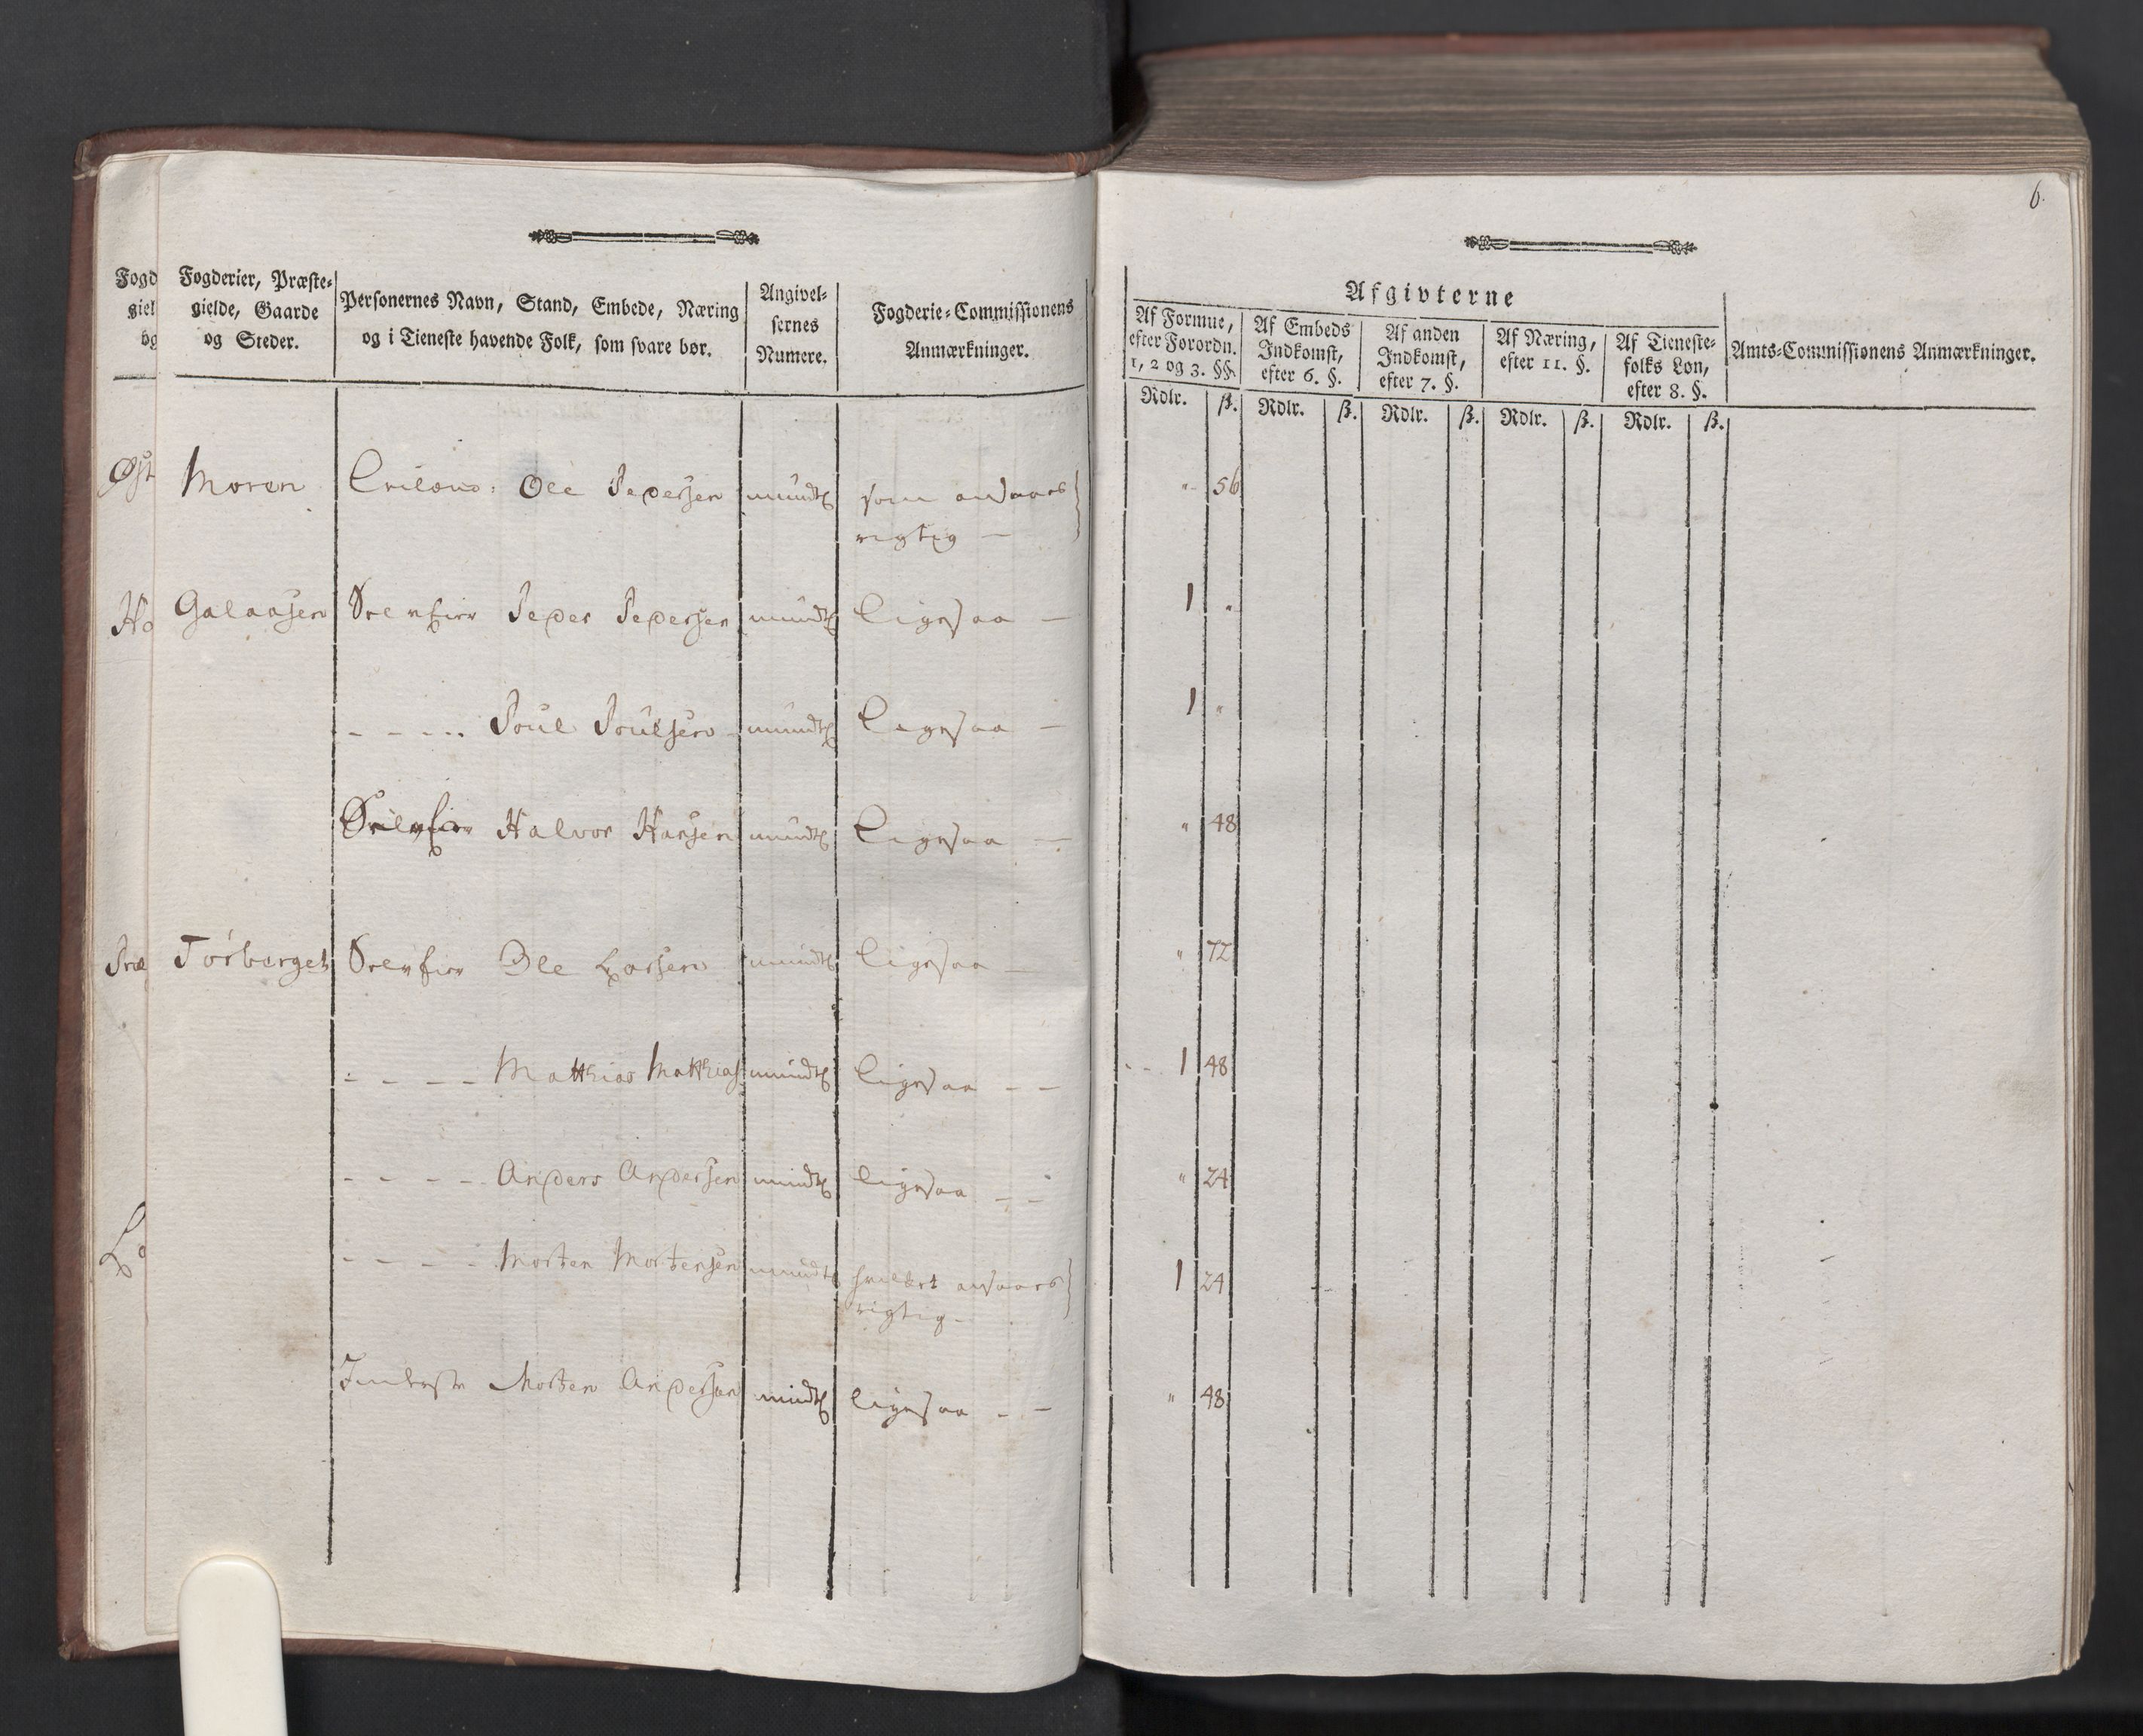 6.
Fogderier, Præste-
gielde, Gaarde
og Steder.
Personernes Navn, Stand, Embede, Næring
og i Tieneste havende Folk, som svare bør.
Angivel-
sernes
Numere.
Fogderie-Commissionens
Anmærkninger.
Afgivterne
Af Formue,
efter Forordn.
1, 2 og 3. §§.
Af Embeds
Indkomst,
efter 6. §.
Af anden
Indkomst,
efter 7. §.
Af Næring,
efter 11. §.
Af Tieneste-
folks Løn,
efter 8. §.
Amts-Commissionens Anmærkninger.
Rdlr. ß. Rdlr. ß. Rdlr. ß. Rdlr. ß. Rdlr. ß.
Fogd
giel
og
Øst
Ho
Præ
Moren Ole Pedersen mundtl som ansaaes " 56
rigtig —
Galaasen Peder Pedersen mundtl ligesaa — 1 "
- - - - Poul Poulsen mundtl ligesaa — 1 "
Halvor Hansen mundtl ligesaa — " 48
Tørberget Ole Larsen mundtl ligesaa — " 72
- - - - Matthias Matthias mundtl ligesaa — — 1 48
- - - - Anders Andersen mundtl ligesaa — — " 24
- - - - Morten Mortensen mundtl ansaaes 1 24
rigtig —
Inderste Morten Andersen mundtl ligesaa — — " 48